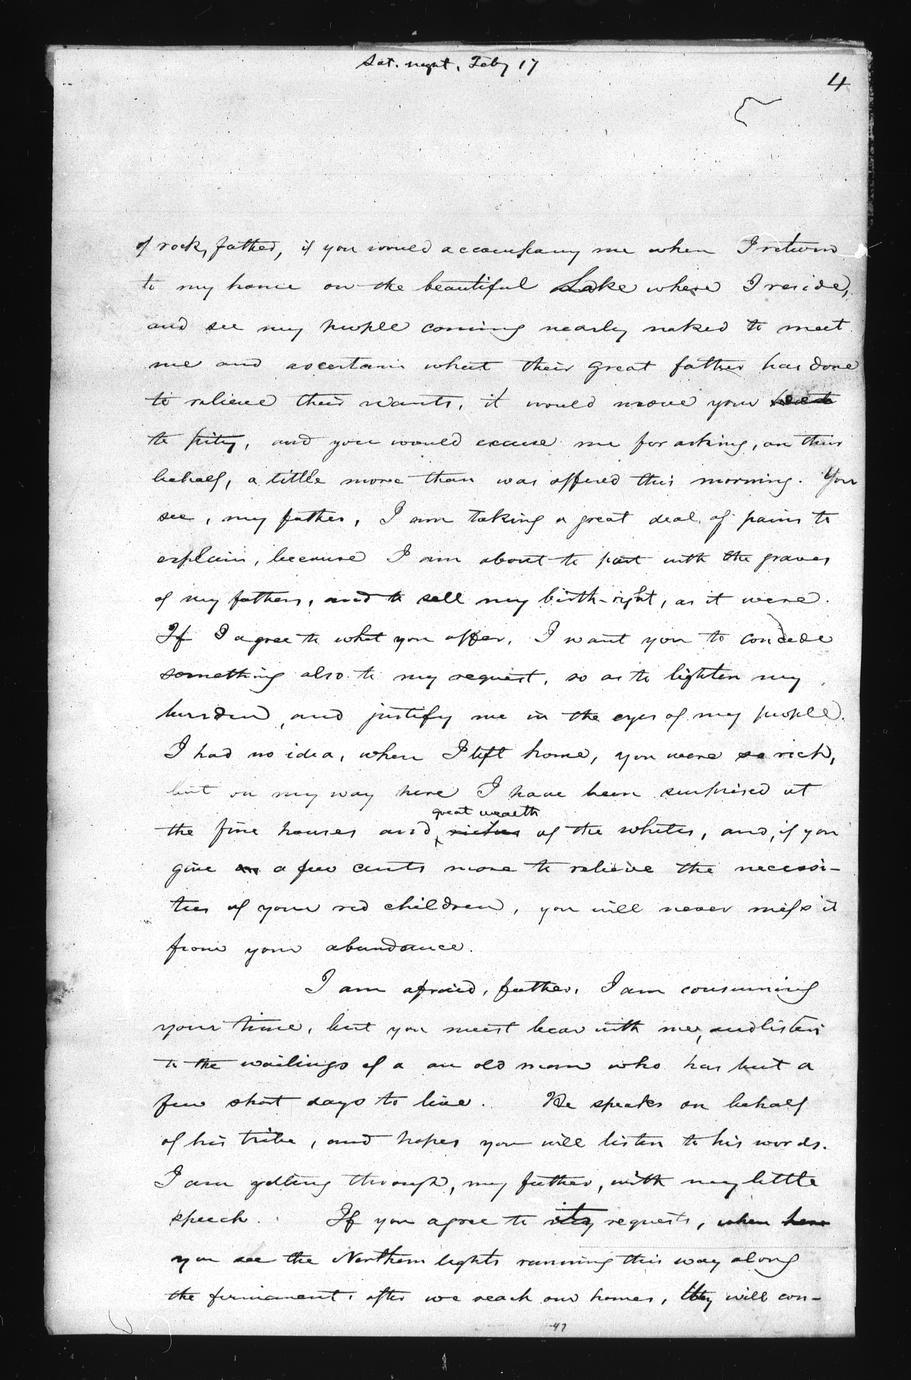 Sat. night, Feby 17
4
of rock, father, if you would accompany me when I return
to my home on the beautiful Lake where I reside,
and see my people coming nearly naked to meet
me and ascertain what their great father has done
to relieve their wants, it would move your
to pity, and you would excuse me for asking, on their
behalf, a little more than was offered this morning. You
see, my father, I am taking a great deal of pains to
explain, because I am about to part with the graves
of my fathers, and to sell my birth-right, as it were.
If I agree to what you offer, I want you to concede
something also to my request, so as to lighten my
burden, and justify me in the eyes of my people.
I had no idea, when I left home, you were so rich,
but on my way here I have been surprised at
great wealth
the fine houses and riches of the whites, and, if you
give a few cents more to relieve the necessi-
ties of your red children, you will never miss it
from your abundance.
I am afraid, father, I am consuming
your time, but you must bear with me, and listen
to the wailings of a an old man who has but a
few short days to live. He speaks on behalf
of his tribe, and hopes you will listen to his words.
I am getting through, my father, with my little
speech. If you agree to requests, when
you see the Northern lights running this way along
the firmament, after we reach our homes, they will con-
47